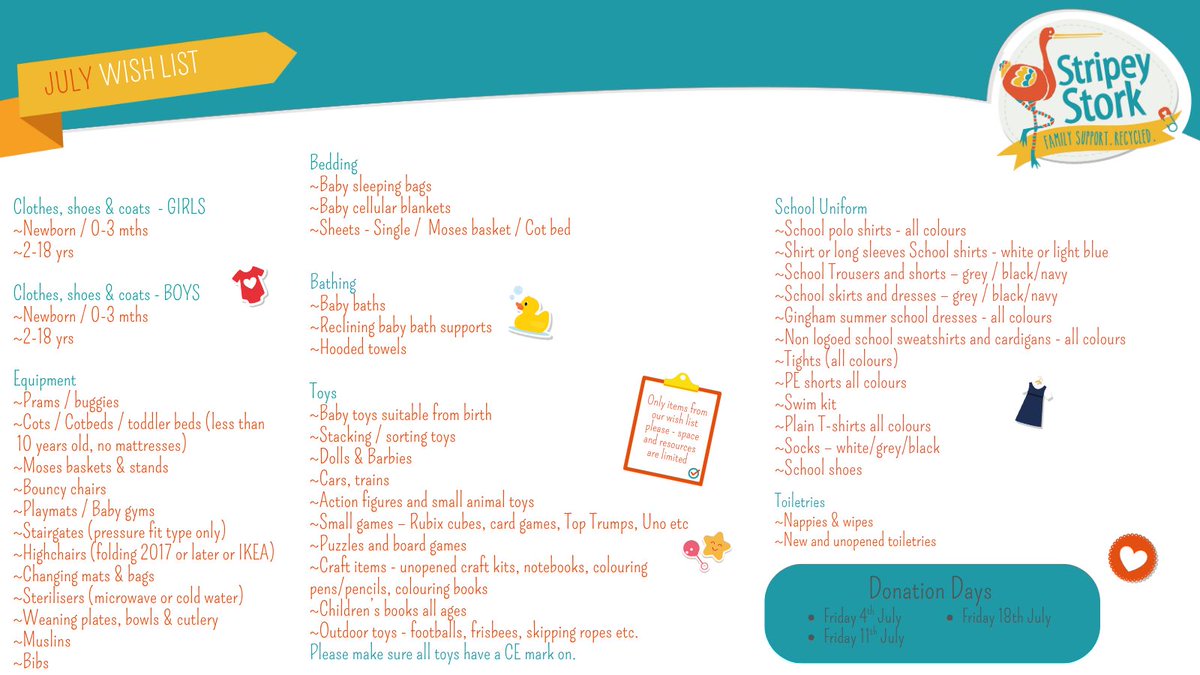 JULY WISH LIST
Stripey
Stork
FAMILY SUPPORT. RECYCLED.
Clothes, shoes & coats - GIRLS
~Newborn / 0-3 mths
~2-18 yrs
Clothes, shoes & coats - BOYS
~Newborn / 0-3 mths
~2-18 yrs
Equipment
~Prams / buggies
~Cots / Cotbeds / toddler beds (less than
10 years old, no mattresses)
~Moses baskets & stands
~Bouncy chairs
~Playmats / Baby gyms
~Stairgates (pressure fit type only)
~Highchairs (folding 2017 or later or IKEA)
~Changing mats & bags
~Sterilisers (microwave or cold water)
~Weaning plates, bowls & cutlery
~Muslins
~Bibs
Bedding
~Baby sleeping bags
~Baby cellular blankets
~Sheets - Single / Moses basket / Cot bed
Bathing
~Baby baths
~Reclining baby bath supports
~Hooded towels
Toys
~Baby toys suitable from birth
~Stacking / sorting toys
~Dolls & Barbies
~Cars, trains
~Action figures and small animal toys
~Small games – Rubix cubes, card games, Top Trumps, Uno etc
~Puzzles and board games
~Craft items - unopened craft kits, notebooks, colouring
pens/pencils, colouring books
~Children's books all ages
~Outdoor toys - footballs, frisbees, skipping ropes etc.
Please make sure all toys have a CE mark on.
Only items from
our wish list
please - space
and resources
are limited
School Uniform
~School polo shirts - all colours
~Shirt or long sleeves School shirts - white or light blue
~School Trousers and shorts – grey / black/navy
~School skirts and dresses – grey / black/navy
~Gingham summer school dresses - all colours
~Non logoed school sweatshirts and cardigans - all colours
~Tights (all colours)
~PE shorts all colours
~Swim kit
~Plain T-shirts all colours
~Socks – white/grey/black
~School shoes
Toiletries
~Nappies & wipes
~New and unopened toiletries
Donation Days
• Friday 4th July
• Friday 11th July
• Friday 18th July